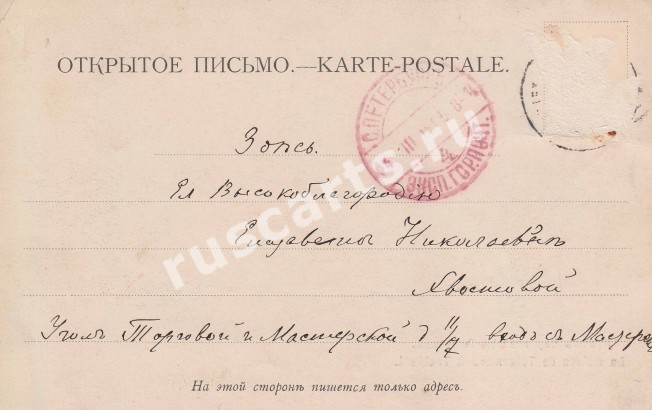 ОТКРЫТОЕ ПИСЬМО.—KARTE-POSTALE.
С.ПЕТЕРБУРГ
ГОР.ПОЧТ.
Здѣсь.
Ея Высокоблагородію
Елизаветы Николаевны
Хвостовой
Уголъ Торговой и Мастерской д 11/7 входъ съ Мастерс
На этой сторонѣ пишется только адресъ.
ruscarts.ru